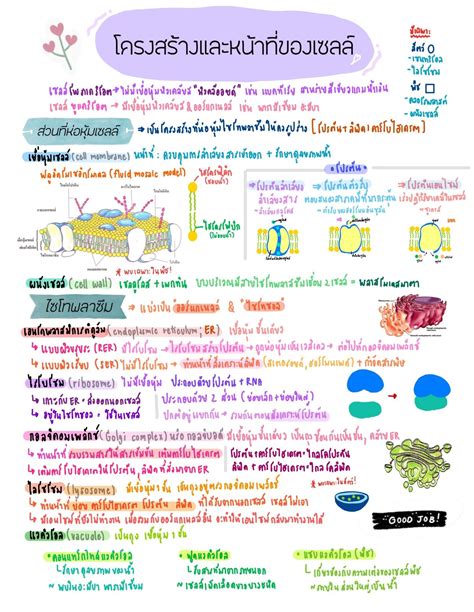 โครงสร้างและหน้าที่ของเซลล์
เฉพาะ
สัตว์
• เซนทริโอล
• ไลโซโซม
พืช
• คลอโรพลาสต์
• ผนังเซลล์
เซลล์โพรคาริโอต → ไม่มีเยื่อหุ้มนิวเคลียส "นิวคลีออยด์" เช่น แบคทีเรีย สาหร่ายสีเขียวแกมน้ำเงิน
เซลล์ยูคาริโอต → มีเยื่อหุ้มนิวเคลียส & ออร์แกเนลล์ เช่น พารามีเซียม อะมีบา
ส่วนที่ห่อหุ้มเซลล์
⇒ เป็นโครงสร้างที่ห่อหุ้มไซโทพลาซึมให้คงรูปร่าง [โปรตีน + ลิพิด + คาร์โบไฮเดรต]
เยื่อหุ้มเซลล์ (cell membrane) หน้าที่ : ควบคุมการลำเลียงสารเข้าออก + รักษาดุลยภาพน้ำ
ฟลูอิดโมเซอิกโมเดล (fluid mosaic model)
ไฮโดรฟิลิก
ไฮโดรโฟบิก
โปรตีน
⇒ โปรตีนลำเลียง
ลำเลียงสาร
⇒ โปรตีนตัวรับ
⇒ โปรตีนเอนไซม์
* พบเฉพาะในพืช!
ผนังเซลล์ (cell wall) เซลลูโลส + เพกทิน บางบริเวณมีสายไซโทพลาสซึมเชื่อม 2 เซลล์ = พลาสโมเดสมาตา
ไซโทพลาซึม
⇒ แบ่งเป็น ออร์แกเนลล์ & "ไซโทซอล"
เอนโดพลาสมิกเรติคูลัม (endoplasmic reticulum; ER) เยื่อหุ้มชั้นเดียว
↳ แบบผิวขรุขระ (RER) มีไรโบโซม → ไรโบโซมสร้างโปรตีน → ถูกห่อหุ้มเป็นเวสิเคิล → ส่งไปที่กอลจิคอมเพล็กซ์
↳ แบบผิวเรียบ (SER) ไม่มีไรโบโซม → ทำหน้าที่สังเคราะห์ลิพิด (สเตอรอยด์, ฮอร์โมนเพศ) + กำจัดสารพิษ
ไรโบโซม (ribosome) ไม่มีเยื่อหุ้ม ประกอบด้วยโปรตีน + RNA
↳ เกาะกับ ER = ส่งออกนอกเซลล์
ประกอบด้วย 2 ส่วน (หน่วยเล็ก + หน่วยใหญ่)
↳ อยู่ในไซโทซอล = ใช้ในเซลล์
ปกติอยู่แยกกัน → รวมกันตอนสังเคราะห์โปรตีน
กอลจิคอมเพล็กซ์ (Golgi complex) หรือ กอลจิบอดี มีเยื่อหุ้มชั้นเดียว เป็นถุงซ้อนกันเป็นชั้น, คล้าย ER
↳ เติมคาร์โบไฮเดรตให้โปรตีน, ลิพิดที่ส่งมาจาก ER
โปรตีน + คาร์โบไฮเดรต = ไกลโคโปรตีน
ลิพิด + คาร์โบไฮเดรต = ไกลโคลิพิด
* พบเฉพาะในสัตว์!
ไลโซโซม (lysosome) มีเยื่อหุ้ม 1 ชั้น เป็นถุงหลุดจากกอลจิคอมเพล็กซ์
↳ ทำหน้าที่ ย่อย คาร์โบไฮเดรต โปรตีน ลิพิด ที่ได้รับจากนอกเซลล์
GOOD JOB!
แวคิวโอล (vacuole) เป็นถุง เยื่อหุ้ม 1 ชั้น
• คอนแทร็กไทล์แวคิวโอล
↳ รักษาดุลยภาพของน้ำ
~ พบใน อะมีบา พารามีเซียม
• ฟูดแวคิวโอล
↳ รับสารอาหารจากภายนอก
~ เซลล์เม็ดเลือดขาวบางชนิด
• แซบแวคิวโอล (พืช)
↳ เกี่ยวข้องกับความเต่งของเซลล์พืช
~ ภายในส่วนใหญ่เป็นน้ำ